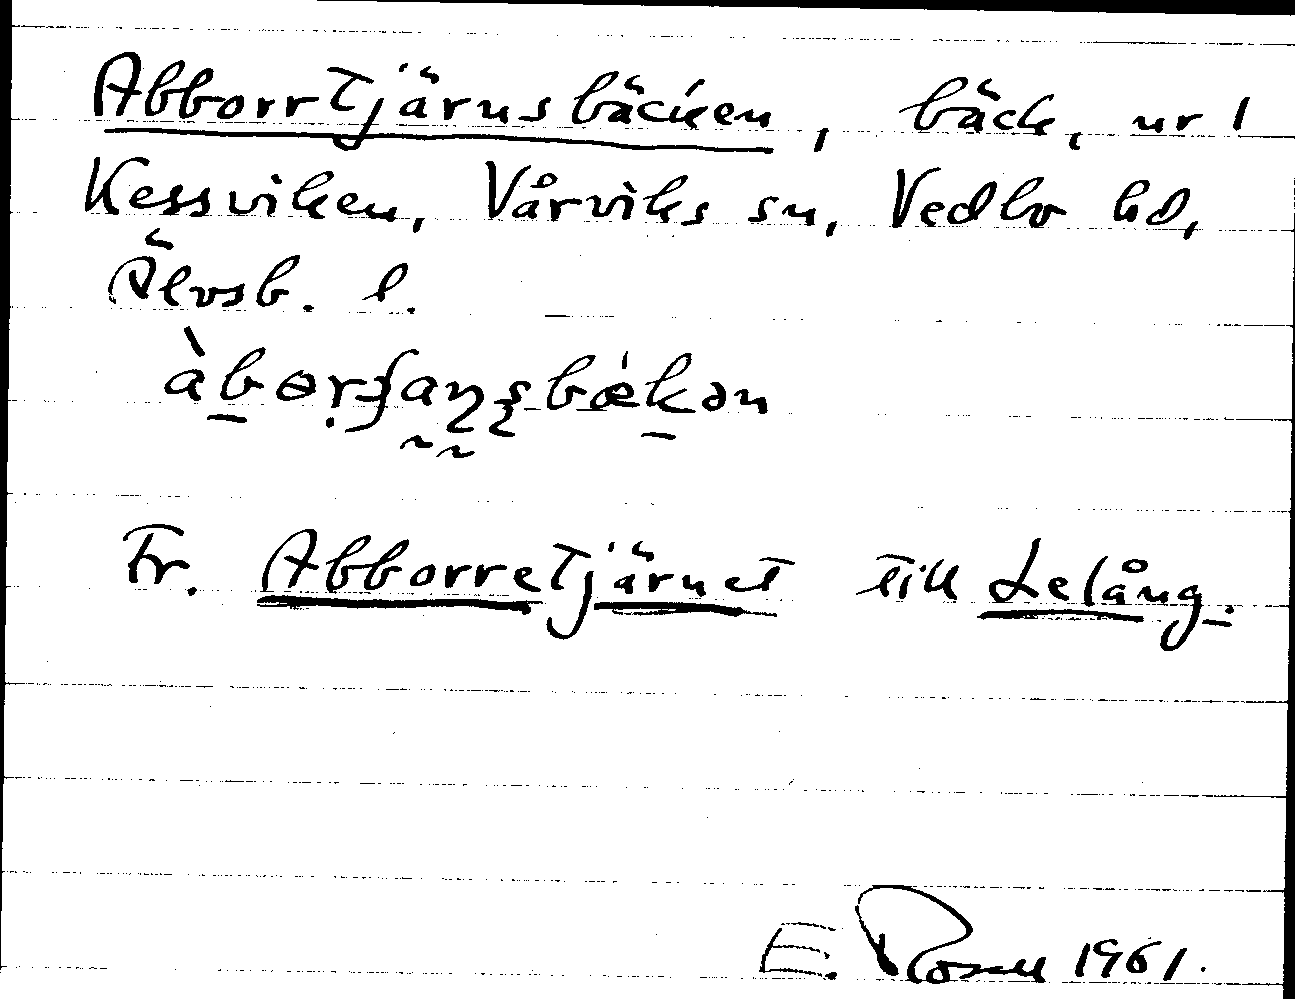 Abborrtjärnsbäcken, bäck, nr 1
Kessviken, Vårviks sn, Vedbo hd,
Älvsb. l.
Fr. Abborretjärnet till Lelång.
E. Rosell 1961.